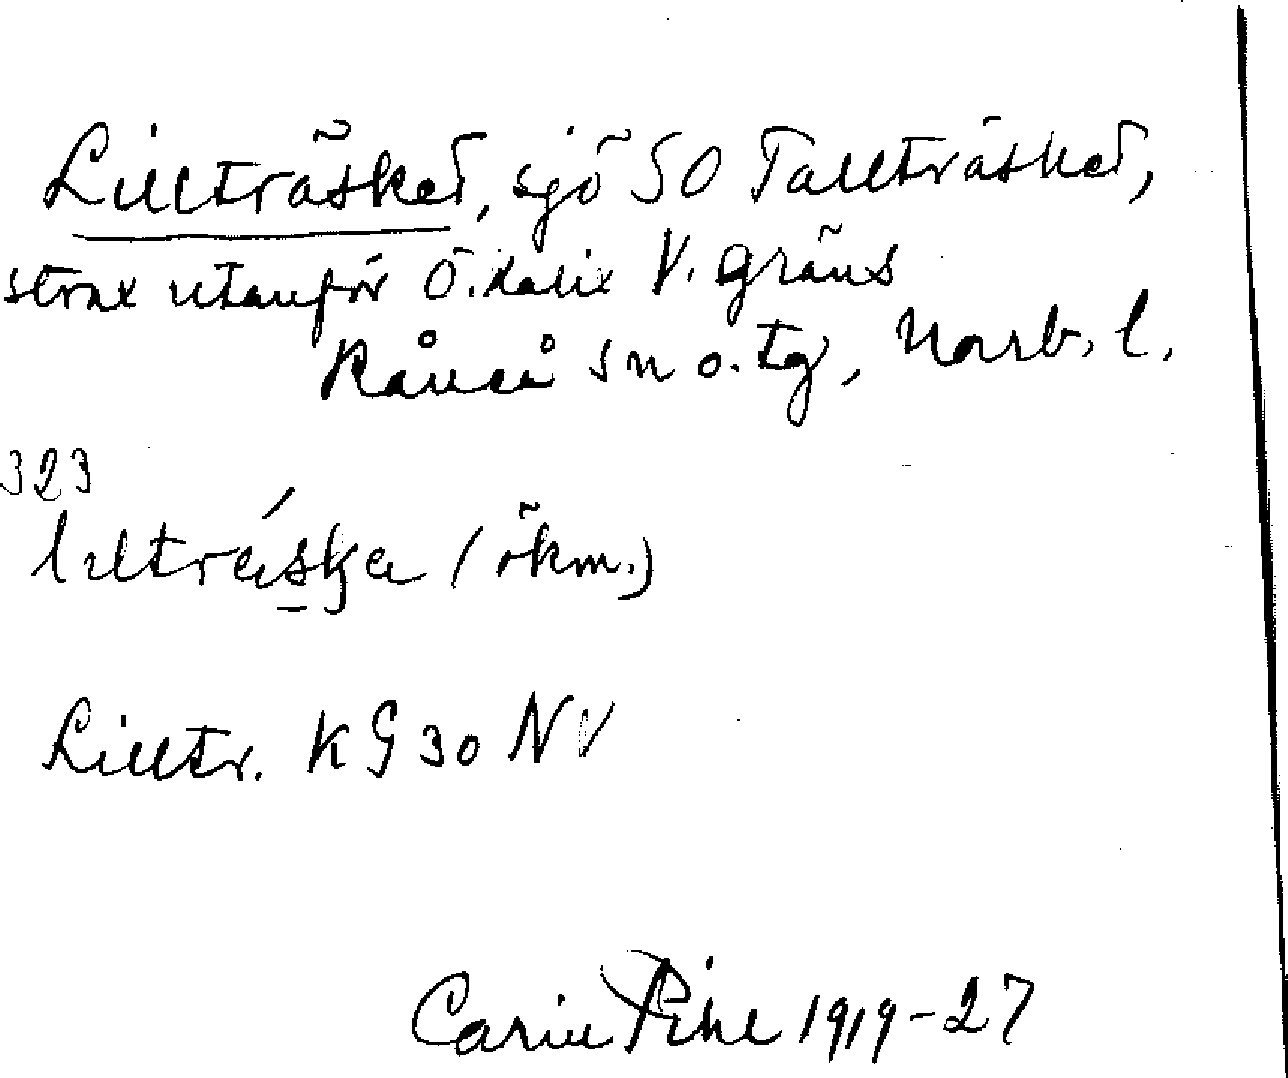 Lillträsket, sjö SO Tallträsket,
strax utanför Ö. Kalix V. gräns
Råneå sn o. tg, Norrb. l.
323
lılträ́sḵa (ökm.)
Lilltr. KG 30 NV
Carin Pihl 1919-27